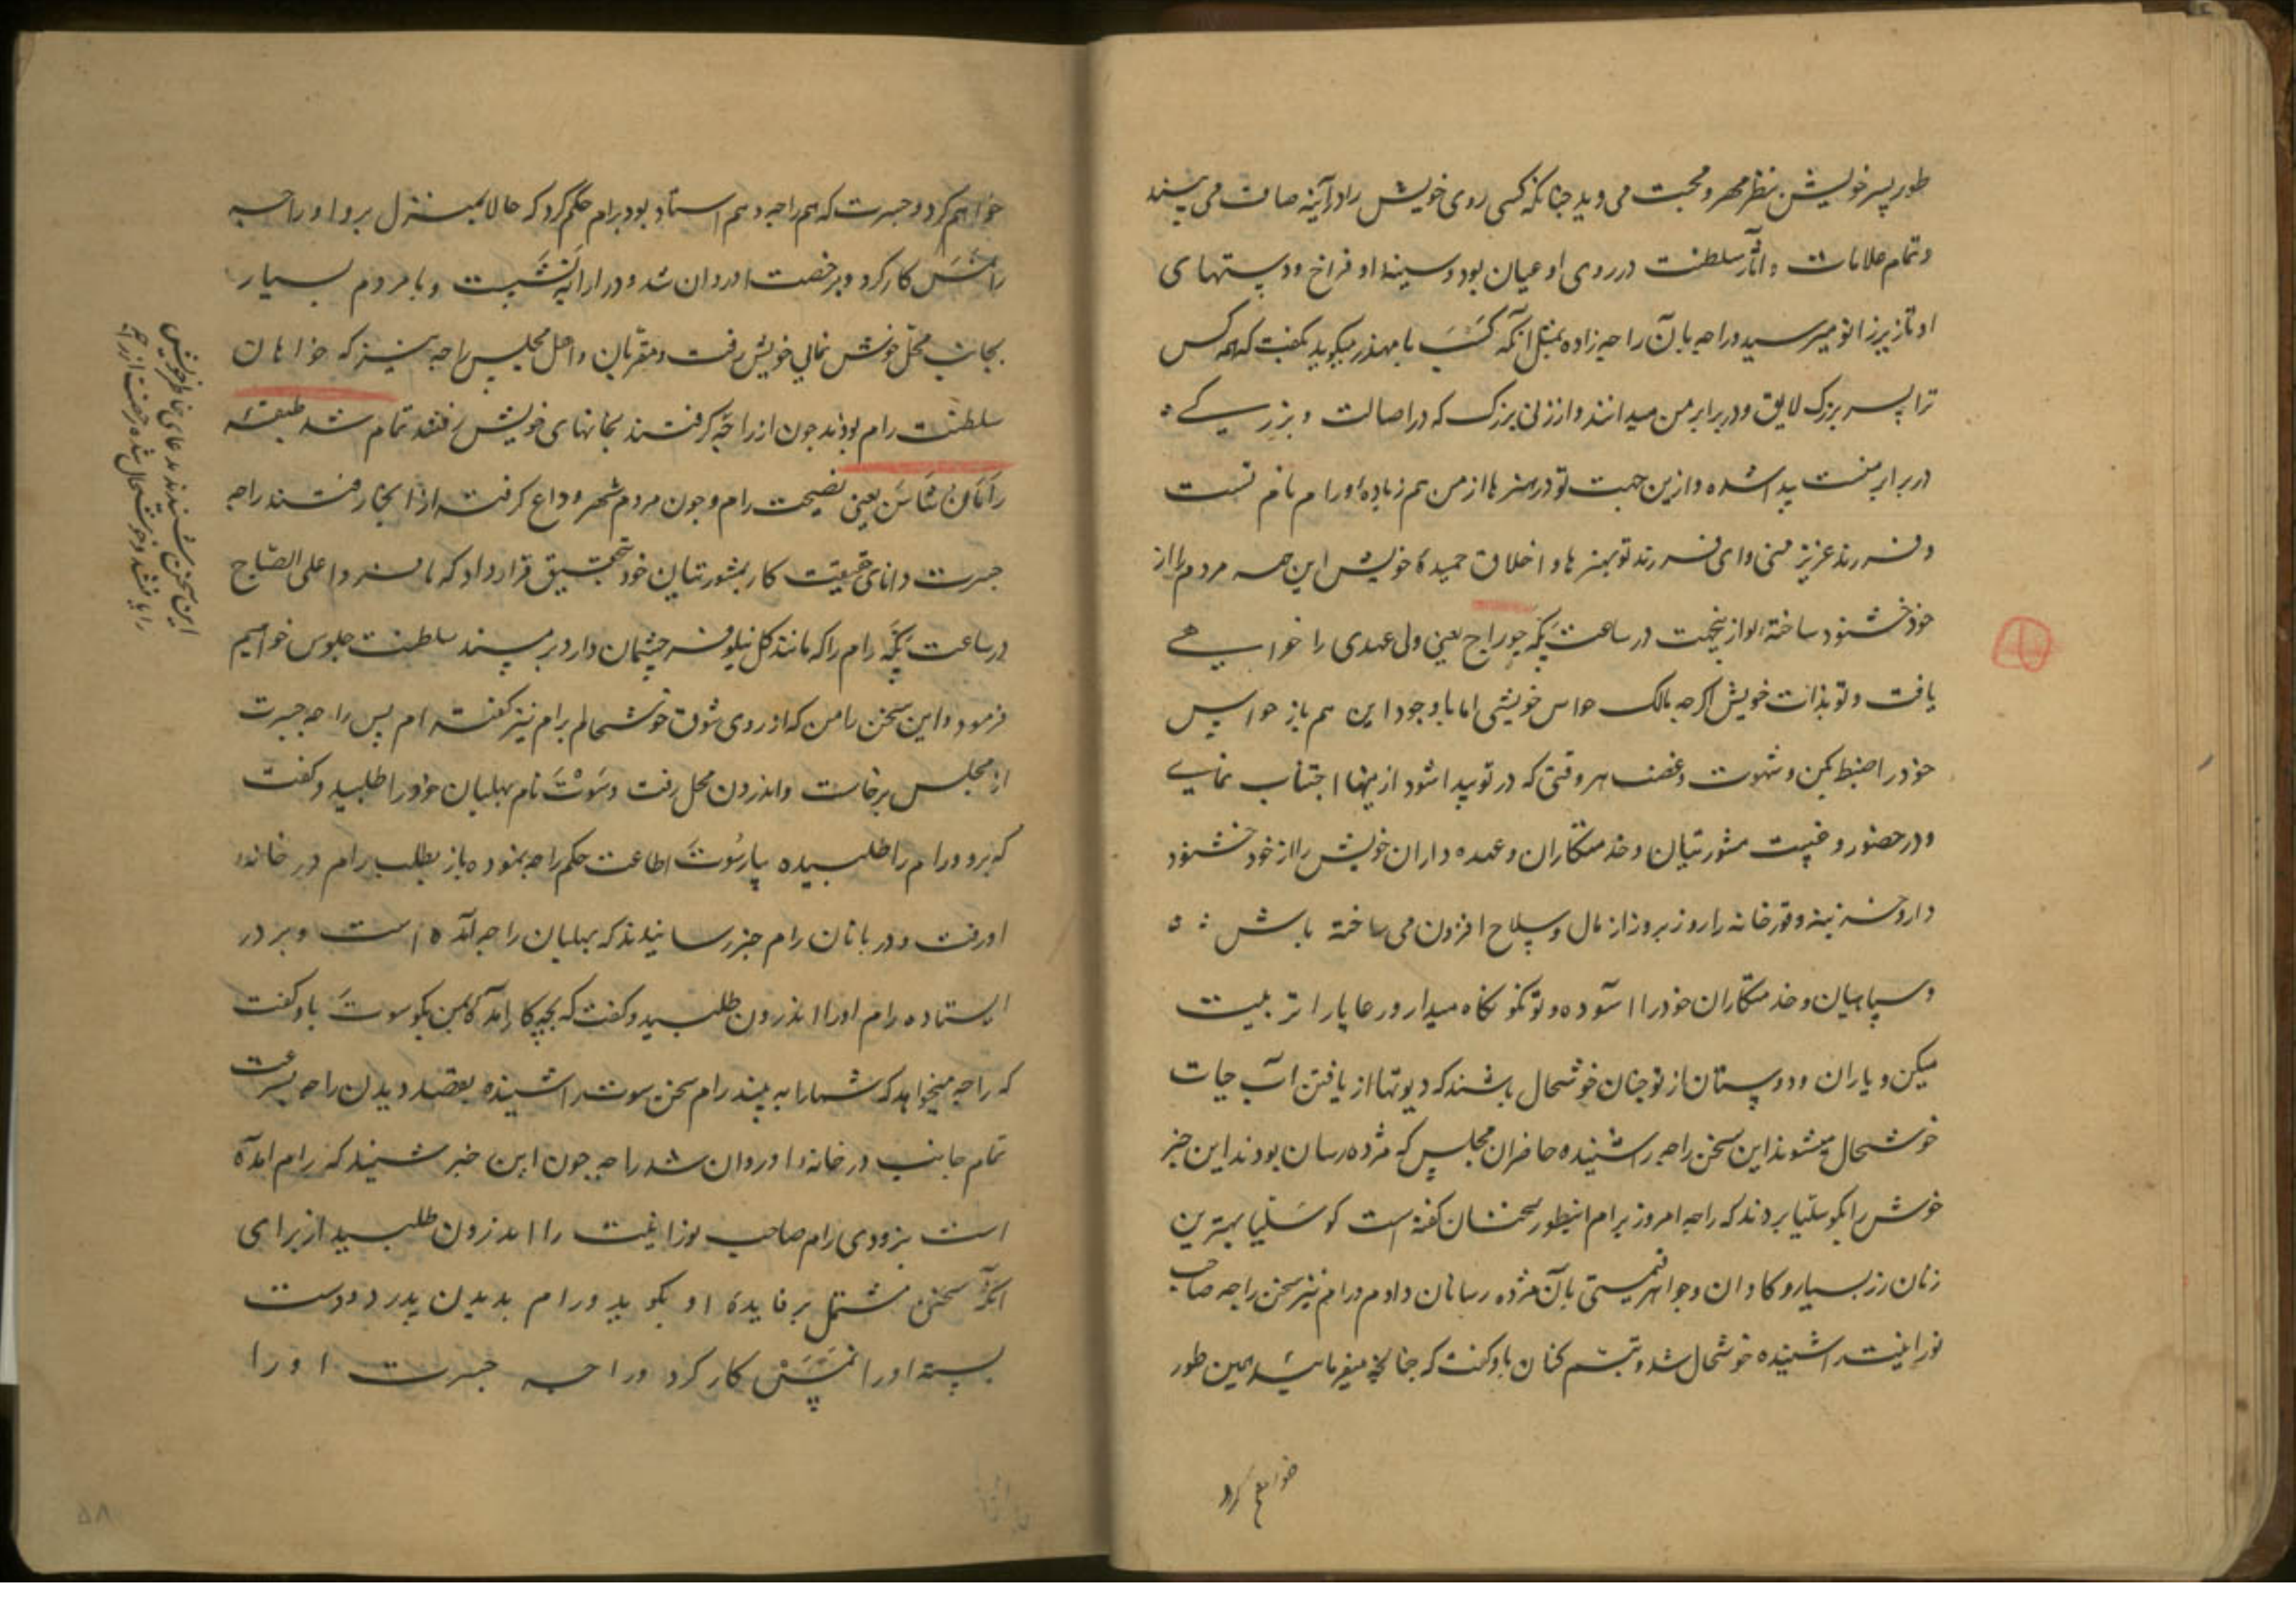 طور پسر خویشتن بنظر مهر و محبت می دید چنانکه کسی روی خویش را در آینه صاف می بیند
و تمام علامات و آثار سلطنت در روی او عیان بود و سینه او فراخ و دستهای
او تا زیر زانو میرسید و راجه بآن راجه زاده بمثل آنکه کشب با مهندر میگوید بگفت که همه کس
ترا پسر بزرگ لایق و در برابر من میدانند و از زن بزرگ که در اصالت و بزرگی
در برابر منست پیدا شده و ازین جهت تو در هنرها از من هم زیاده و رام نام تست
و فرزند عزیز منی و ای فرزند تو بهنرها و اخلاق حمیده خویش این همه مردم را از
خود خشنود ساخته از ینجهت در ساعت پکه جوراج یعنی ولی عهدی را خواهی
یافت و تو بذات خویش اگرچه مالک حواس خویشی اما با وجود این هم باز حواس
خود را ضبط کن و شهوت و غضب هر وقتی که در تو پیدا شود ازینها اجتناب نمای
و در حضور و غیبت مشورتیان و خدمتکاران و عهده داران خویش را از خود خشنود
دار و خزینه و قورخانه را روز بروز از مال و سلاح افزون می ساخته باش
و سپاهیان و خدمتکاران خود را آسوده و تو نکو نگاه میدار و رعایا را تربیت
میکن و یاران و دوستان از تو چنان خوشحال باشند که دیوتها از یافتن آب حیات
خوشحال میشوند این سخن راجه را شنیده حاضران مجلس که مژده رسان بودند این خبر
خوش را بکوسلیا بردند که راجه امروز برام اینطور سخنان گفته است کوسلیا بهترین
زنان زر بسیار و گاوان و جواهر قیمتی بآن مژده رسانان داد و رام نیز سخن راجه صاحب
نورانیت را شنیده خوشحال شد و تبسم کنان باو گفت که چنانچه میفرمائید همین طور
خواهم کرد
خواهم کرد و جسرت که هم راجه و هم استاد بود برام حکم کرد که حالا بمنزل برو او راجه
را نمس کار کرد و برخصت او روان شد و در ارابه نشست و با مردم بسیار
بجانب محل خوش نمای خویش رفت و مقربان و اهل مجلس راجه نیز که خواهان
سلطنت رام بودند چون از راجه گرفتند بخانهای خویش رفتند تمام شد طبقه
راماَنُ شاسَن یعنی نصیحت رام و چون مردم شهر وداع گرفته از آنجا رفتند راجه
جسرت دانای حقیقت کار بمشورتیان خود تحقیق قرار داد که ما فردا علی الصباح
در ساعت پکه رام را که مانند گل نیلوفر چشمان دارد بر مسند سلطنت جلوس خواهیم
فرمود و این سخن را من که از روی شوق خوشحالم برام نیز گفته ام پس راجه جسرت
از مجلس برخاست و اندرون محل رفت و سَوتَ نام بهلبان خود را طلبید و گفت
که برو و رام را طلبیده بیار سُوتَ اطاعت حکم راجه بنموده باز بطلب رام در خانه
او رفت و دربانان رام خبر رسانیدند که بهلبان راجه آمده است و بر در
ایستاده رام او را اندرون طلبید و گفت که بچه کار آمده بمن بگو سوت باو گفت
که راجه میخواهد که شما را به بیند رام سخن سوت را شنیده بقصد دیدن راجه بسرعت
تمام جانب در خانه او روان شد راجه چون این خبر شنید که رام آمده
است بزودی رام صاحب نورانیت را اندرون طلبید از برای
آنکه سخنی مشتمل بر فایده او بگوید و رام بدیدن پدر دو دست
بسته او را نمس کار کرد و راجه جسرت او را
این سخن شنیدند بدعای خاطر خویش
را یافتند و خوشحال شده رخصت از راجه
۵۸